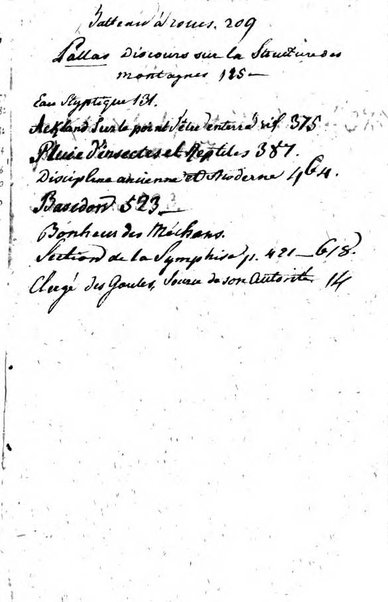 Batteau à roues. 209
Pallas Discours sur la Structure des
montagnes 125 —
Eau Styptique 131.
sur le point d'être enterré vif. 375
Pluie d'insectes et Reptiles 387.
Discipline ancienne et Moderne 464.
Basedow 523 —
Bonheur des Méchans.
Section de la Symphise p. 421 — 618.
Clergé des Gaules, Source de son Autorité. 14